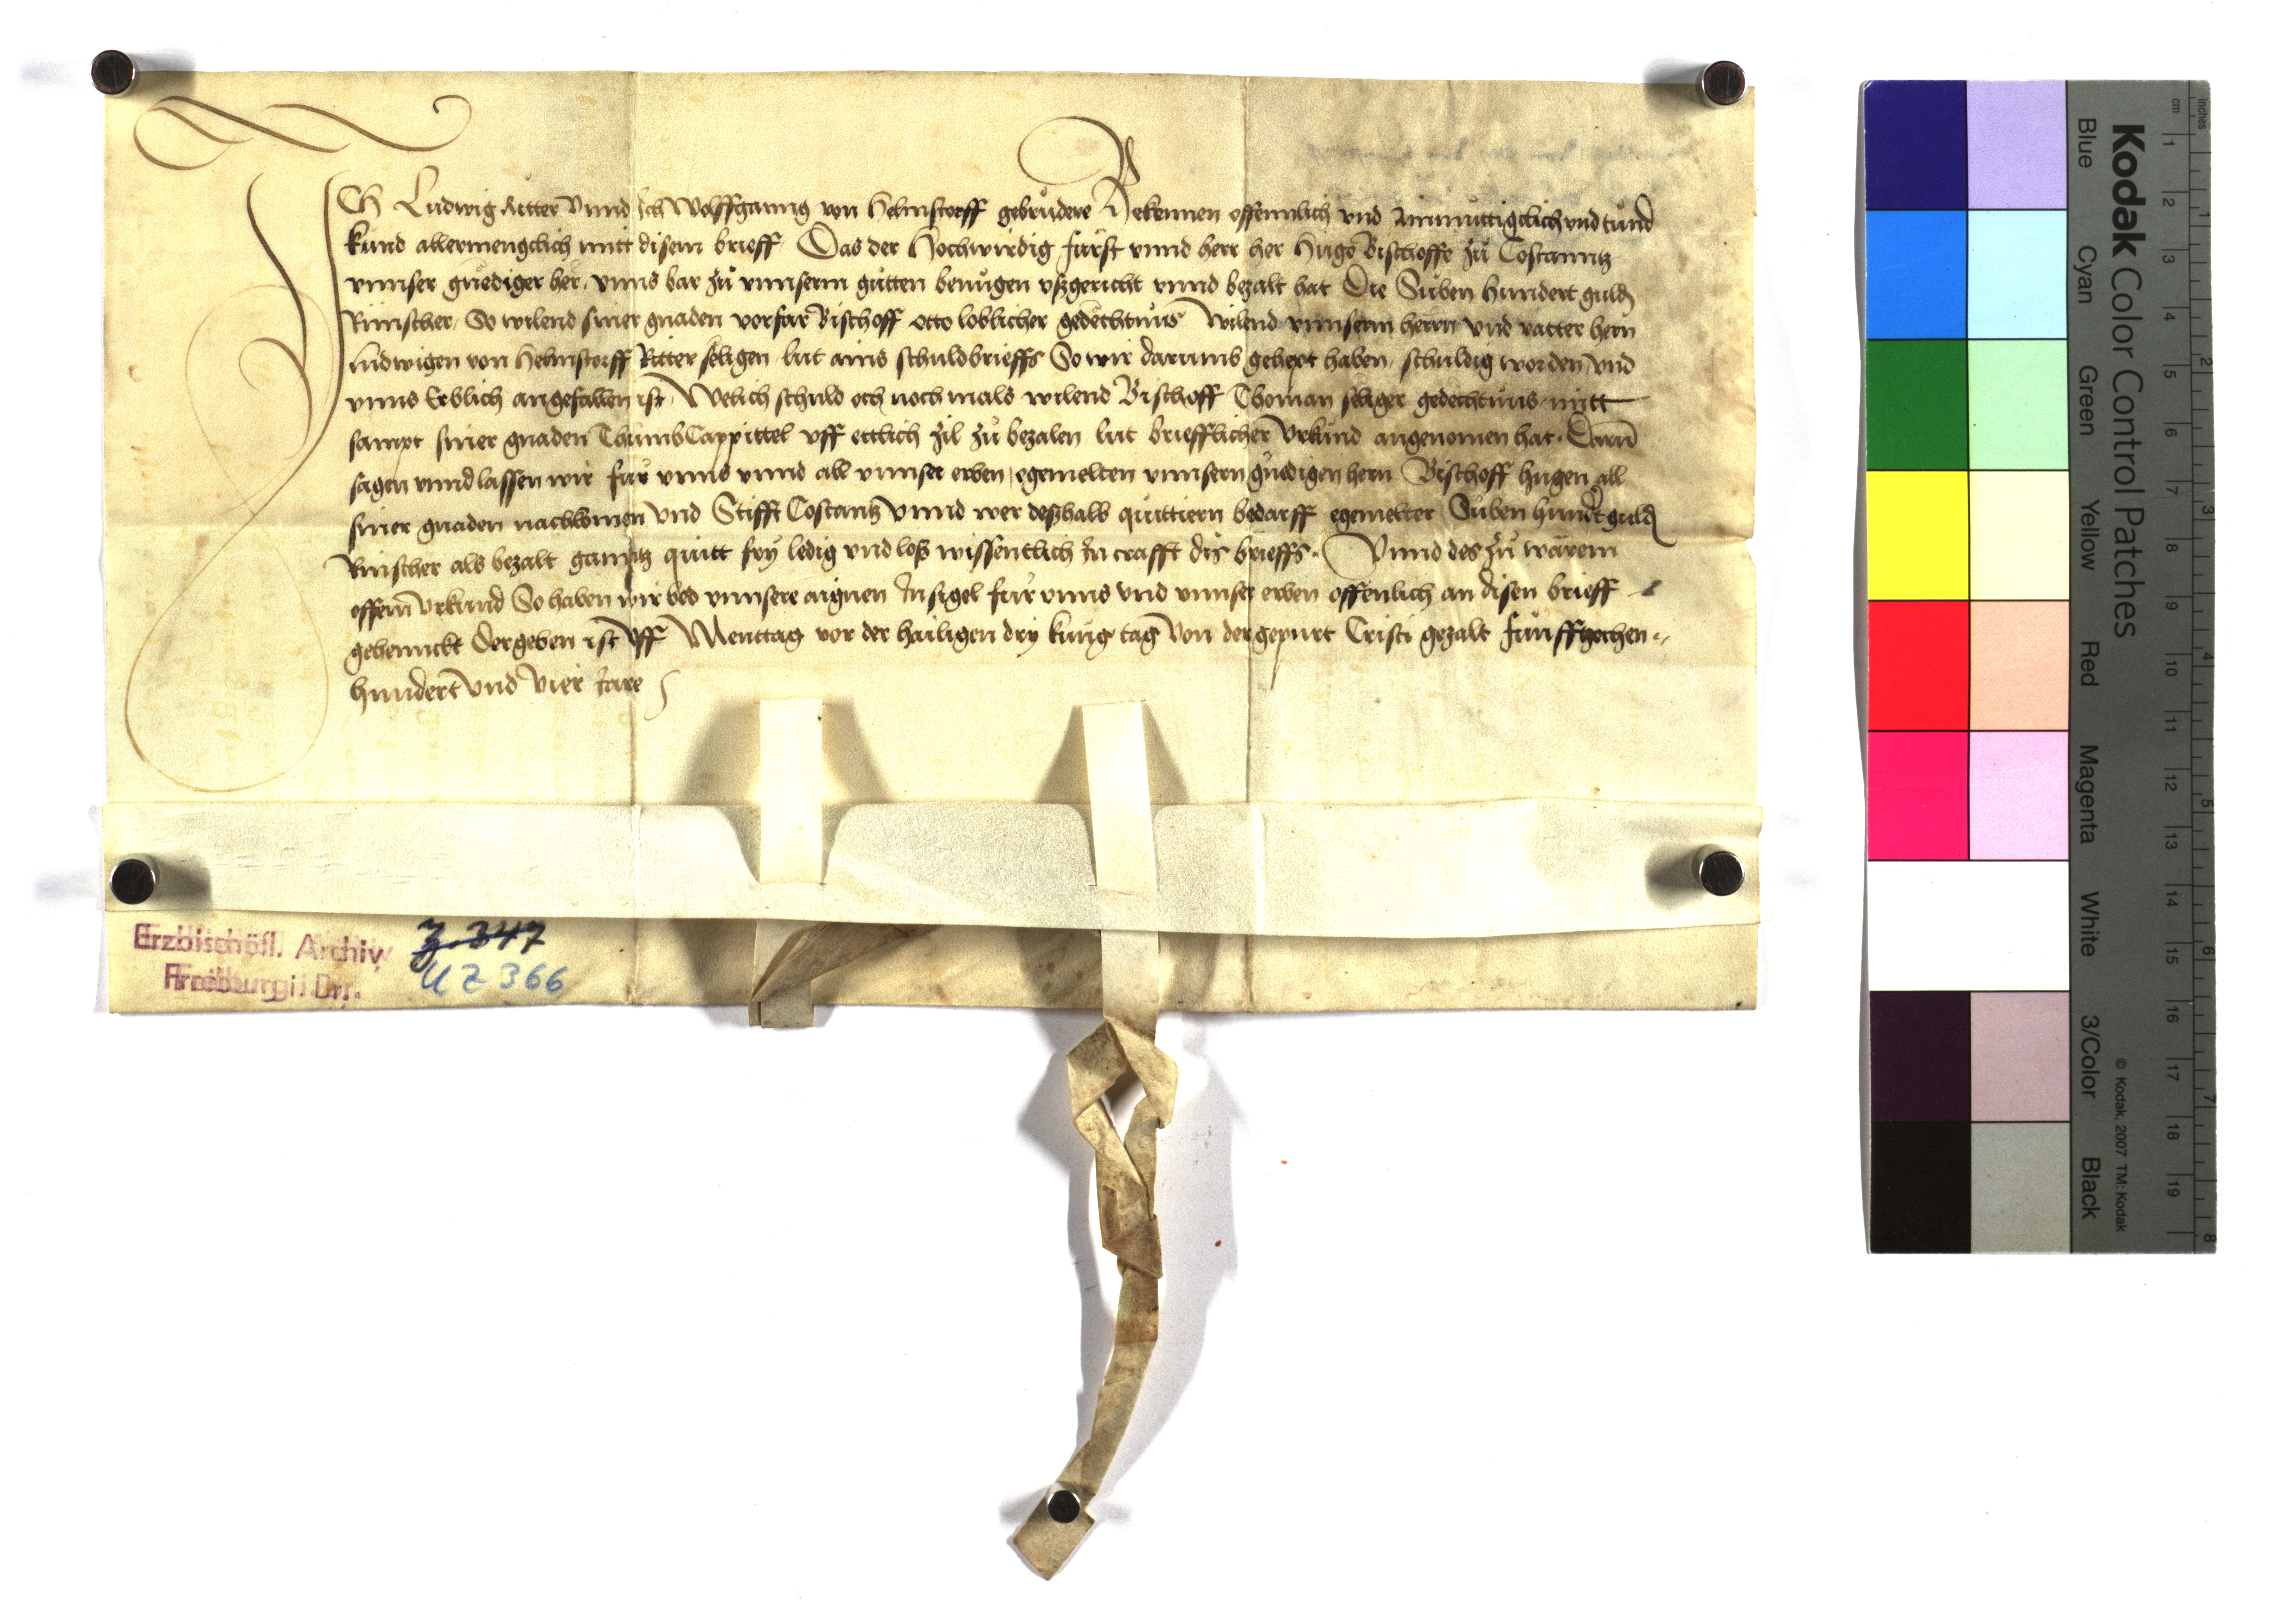 ICh Ludwig Ritter vnnd Ich Wolffganng von Helmstorff gebrůdere Bekennen offennlich vnd Ainmuttigclich vnd tund
kund allermengclich mitt disem brieff Das der Hochwirdig furst vnnd herr her Hugo Bischoffe zů Costanntz
vnnser gnediger her, vnns bar zů vnnserm gůtten benůgen vßgericht vnnd bezalt hat Die Suben Hundert guld
Rinischer, So wilend siner gnaden vorfar Bischoff otto loblicher gedechtnus Wilend vnnserm herrn vnd vatter hern
Ludwigen von Helmstorff Ritter seligen lut ains schuldbrieffs So wir darumb gehept haben, schuldig worden vnd
vnns Erblich angefallen ist, Welich schuld och nochmals wilend Bischoff Thoman seliger gedechtnus, mitt
sampt siner gnaden ThumbCappittel vff ettlich zil zů bezalen lut briefflicher vrkund angenomen hat. Daru
sagen vnnd lassen wir fur vnns vnnd all vnnser erben, egemelten vnnsern gnedigen hern Bischoff hugen all
siner gnaden nachkomen vnd Stifft Costantz vnnd wer deßhalb quittiern bedarff egemelter Suben hundt guld
Rinischer als bezalt ganntz quitt fry ledig vnd loß wissentlich In crafft dis brieffs. Vnnd des zů warem
offem vrkund So haben wir bed vnnsere aignen Insigel fur vnns vnd vnnser erben offenlich an disen brieff
gehennckt Der geben ist vff Menttag vor der hailigen dry kung tag von der gepurt Cristi gezalt funffzechen
hundert vnd vier Iare
Erzbischöfl. Archiv
Freiburg i. Br.
Z. 347
UZ 366
Kodak Color Control Patches
Blue Cyan Green Yellow Red Magenta White 3/Color Black
© Kodak, 2007 TM: Kodak
inches 1 2 3 4 5 6 7 8
cm 1 2 3 4 5 6 7 8 9 10 11 12 13 14 15 16 17 18 19